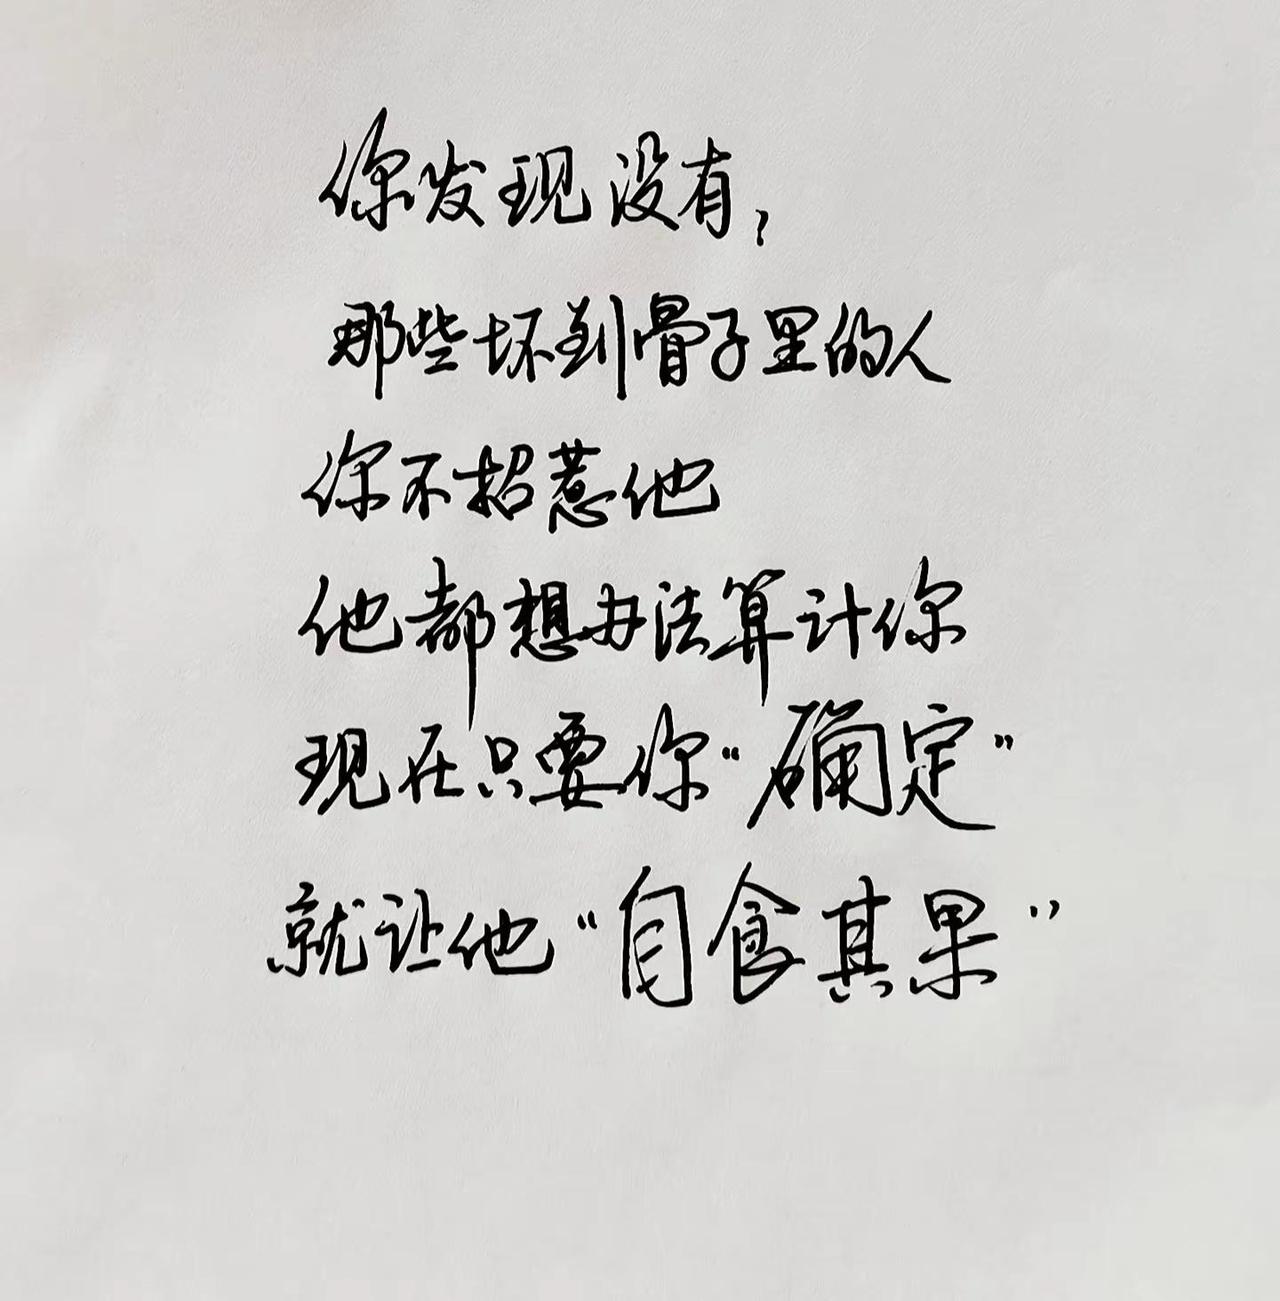 你发现没有，
那些坏到骨子里的人
你不招惹他
他都想办法算计你
现在只要你“确定”
就让他“自食其果”